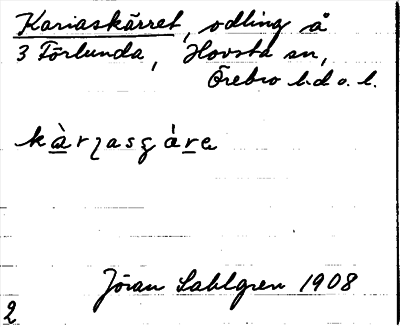 Kariaskärret, odling å
3 Törlunda, Hovsta sn,
Örebro hd o. l.
Jöran Sahlgren 1908
2